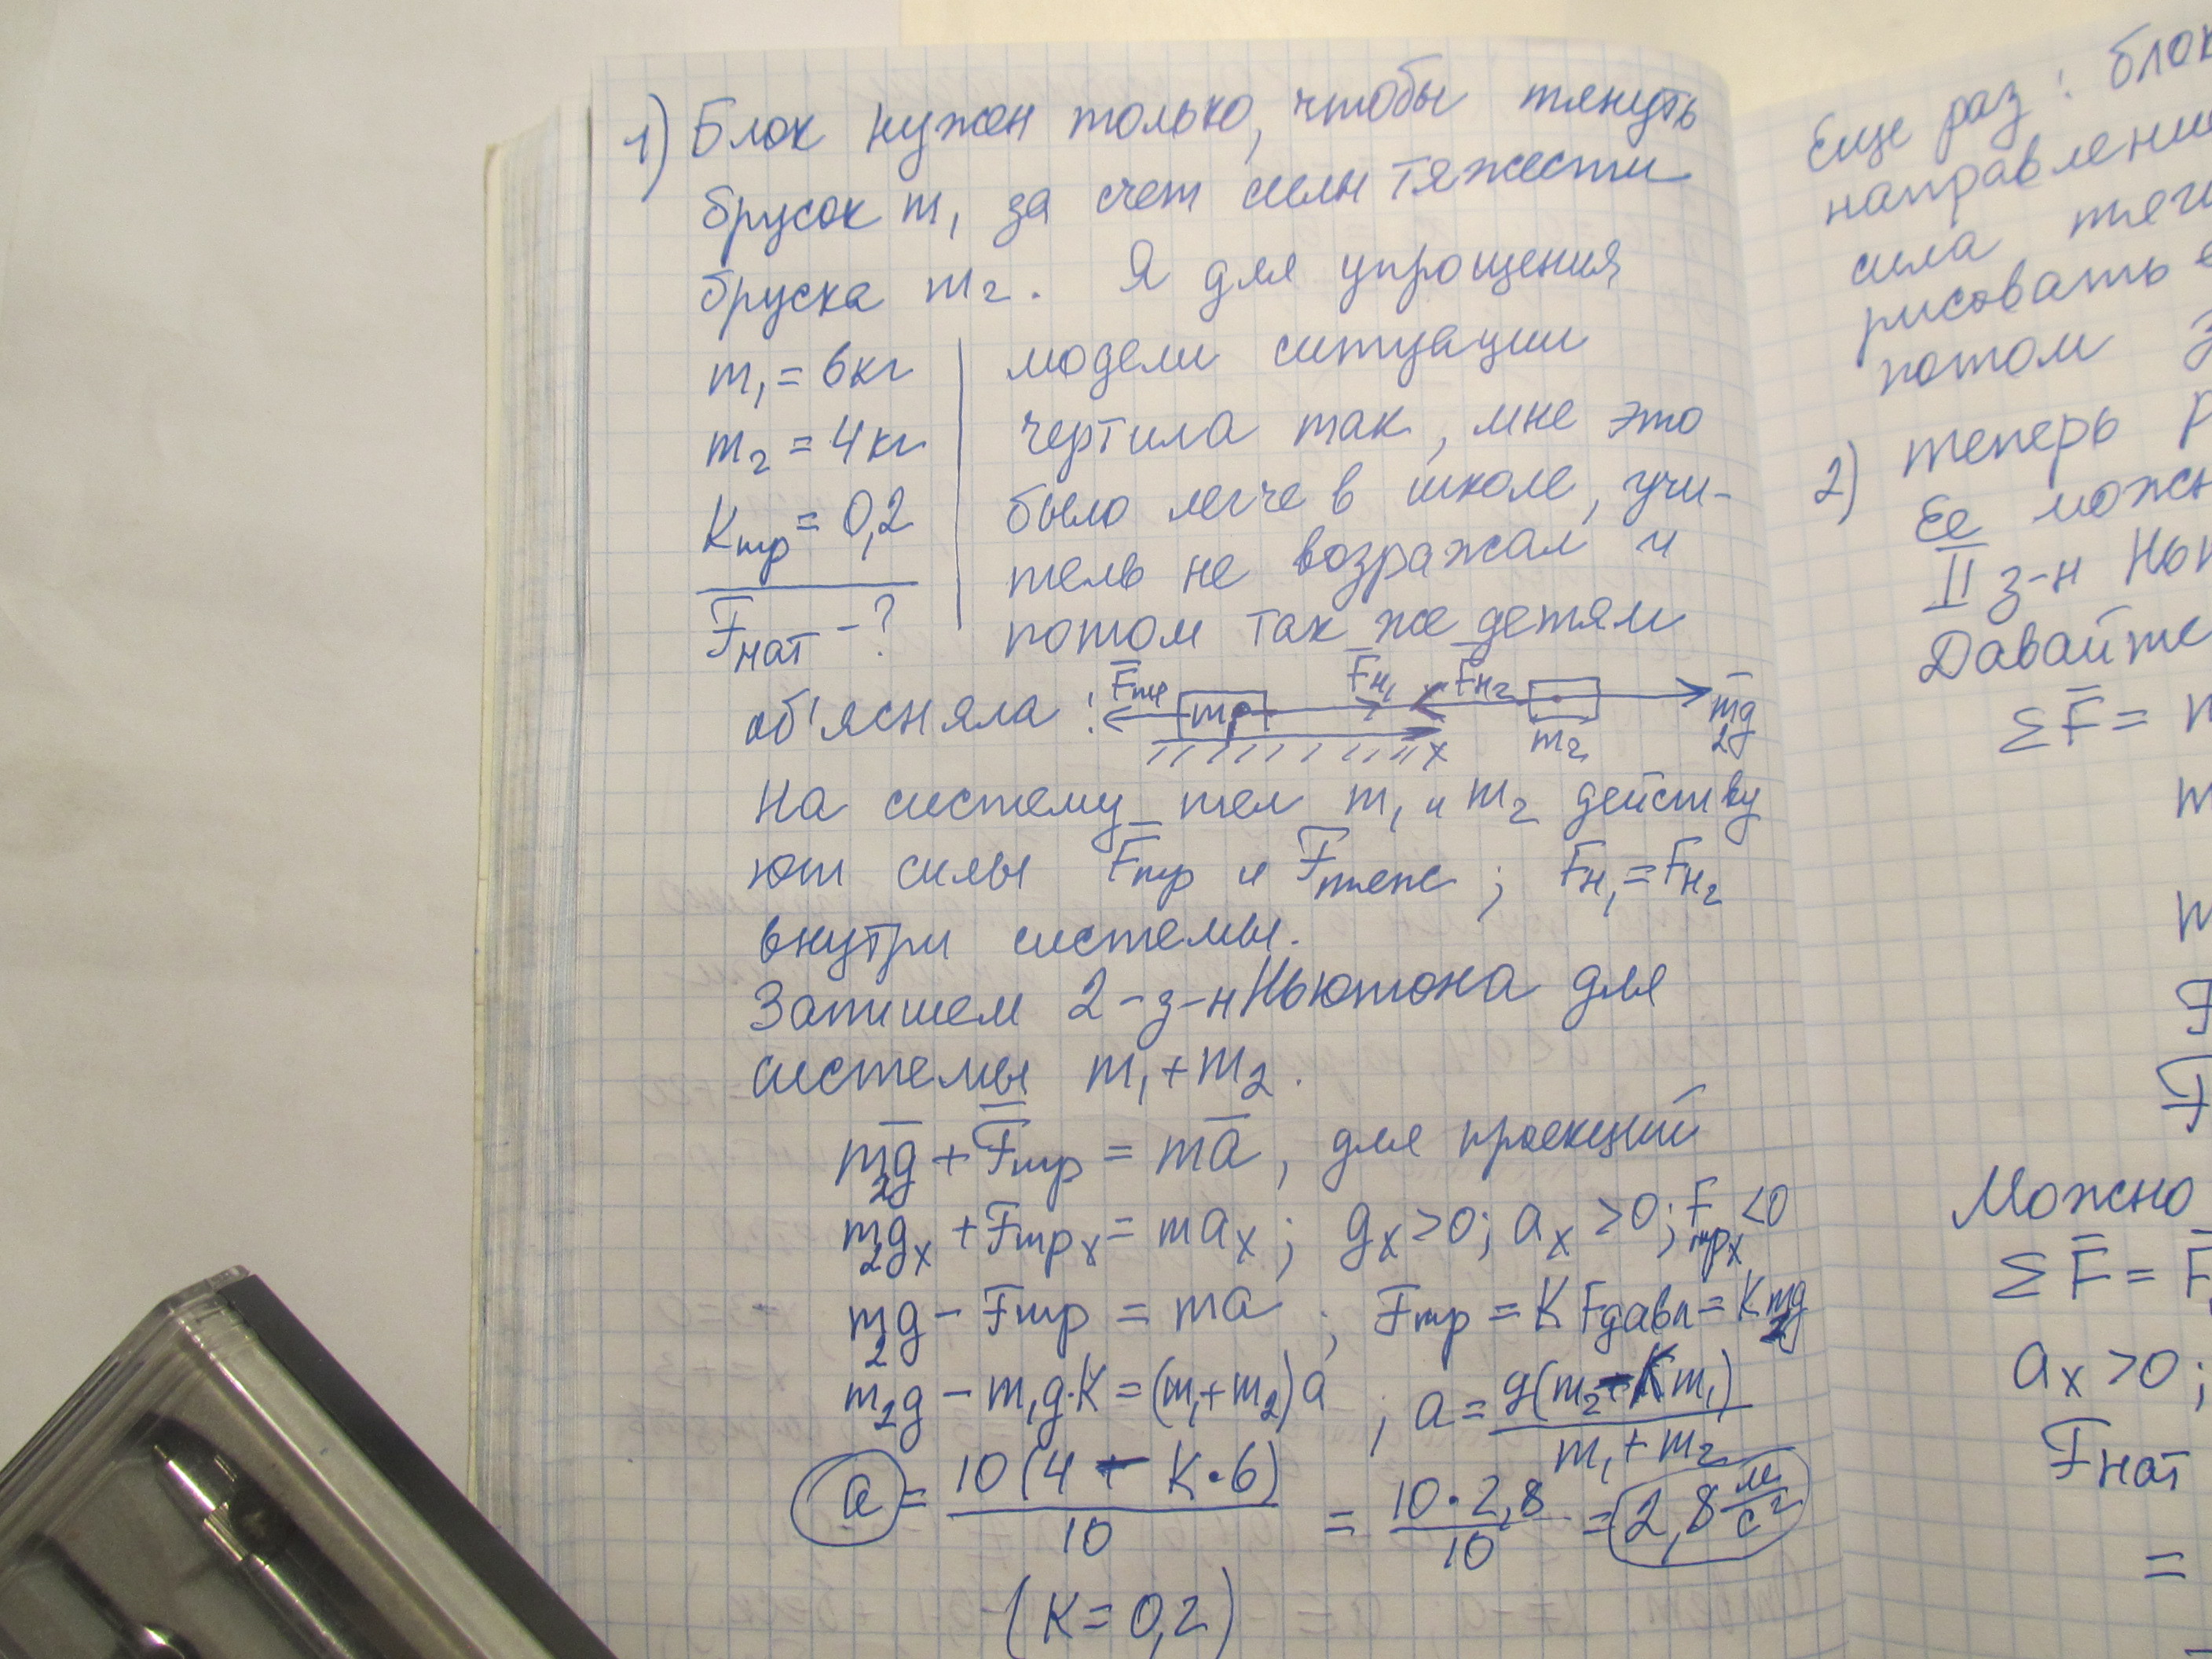 1) Блок нужен только, чтобы тянуть
брусок m₁ за счет силы тяжести
бруска m₂. Я для упрощения
m₁ = 6кг
m₂ = 4кг
Kтр = 0,2
F̅нат - ?
модели ситуации
чертила так, мне это
было легче в школе, учи-
тель не возражал и
потом так же детям
об'ясняла :
F̅тр m₁ F̅н₁ F̅н₂ m₂ m₂g̅
x
На систему тел m₁ и m₂ действу
ют силы F̅тр и F̅тяж ; Fн₁ = Fн₂
внутри системы.
Запишем 2-з-н Ньютона для
системы m₁ + m₂.
m₂g̅ + F̅тр = ma̅, для проекций
m₂gₓ + Fтрₓ = maₓ ; gₓ > 0; aₓ > 0; Fтрₓ < 0
m₂g - Fтр = ma ; Fтр = K Fдавл = K m₂g
m₂g - m₁g·K = (m₁+m₂)a ; a = g(m₂ - Km₁) / m₁ + m₂
a = 10(4 - K·6) / 10 = 10·2,8 / 10 = 2,8 м/с²
(K = 0,2)
Еще раз : блок
направлени
сила тяги
рисовать
потом
2) теперь
Ее можн
II з-н Нью
Давайте
ΣF̅ =
Можно
ΣF̅ = F
aₓ > 0;
Fнат
=